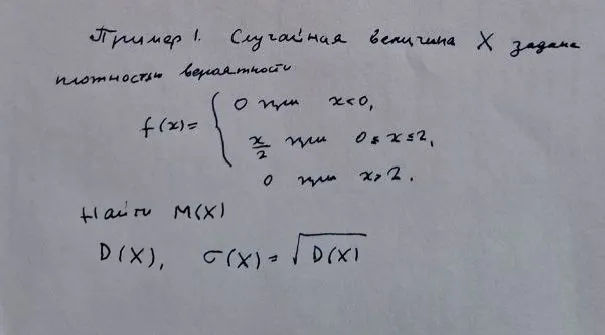 Пример 1. Случайная величина X задана
плотностью вероятности
f(x) = { 0 при x<0,
x/2 при 0 ≤ x ≤ 2,
0 при x > 2.
Найти M(X)
D(X), σ(X) = √D(X)